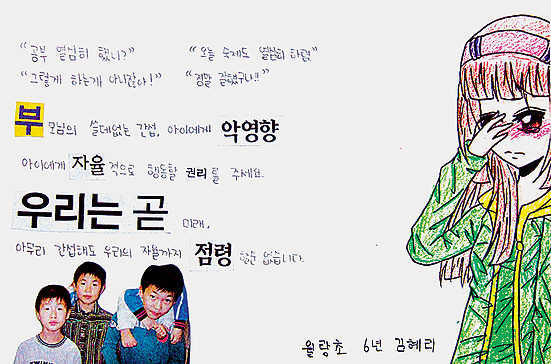 "공부 열심히 했니?" "오늘 숙제도 열심히 하렴"
"그렇게 하는게 아니잖아!" "정말 잘했구나!!"
부모님의 쓸데없는 간섭, 아이에게 악영향
아이에게 자율적으로 행동할 권리를 주세요.
우리는 곧 미래,
아무리 간섭해도 우리의 자율까지 점령할순 없습니다.
월랑초 6년 김혜리